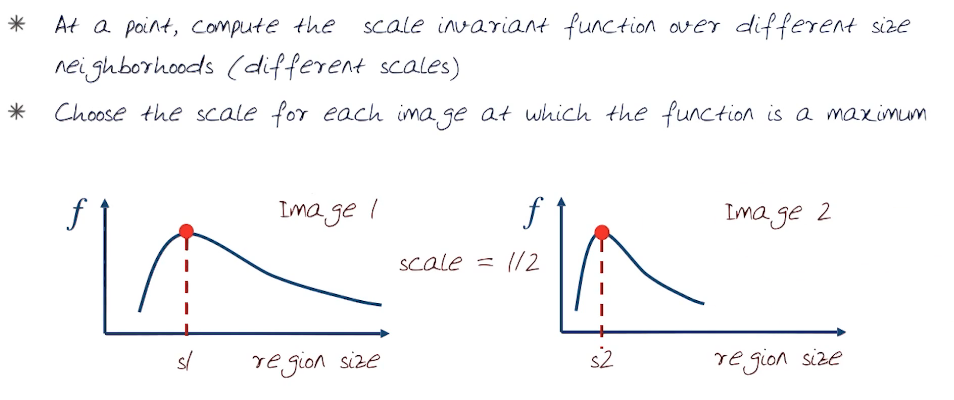 * At a point, compute the scale invariant function over different size
neighborhoods (different scales)
* Choose the scale for each image at which the function is a maximum
f
Image 1
f
Image 2
scale = 1/2
s1
region size
s2
region size